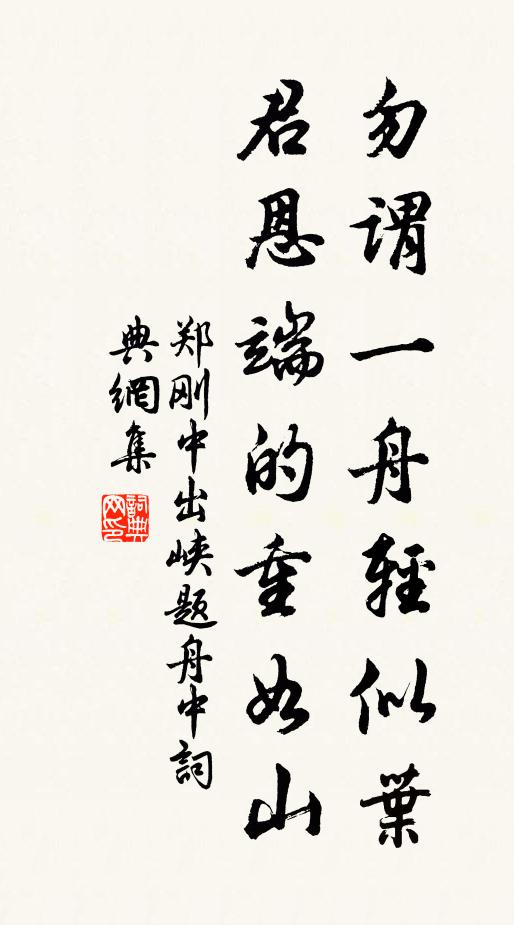 勿謂一舟輕似葉
君恩端的重如山
郑刚中出峡题舟中詞
典網集
詞典网印